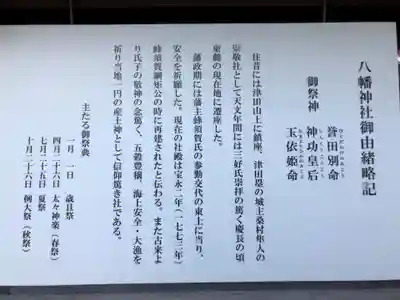 八幡神社御由緒略記
御祭神
誉田別命
神功皇后
玉依姫命
往昔には津田山上に鎮座、津田塁の城主桑村隼人の
崇敬社として天文年間には三好氏崇拝の篤く慶長の頃
東麓の現在地に遷座した。
藩政期には藩主蜂須賀氏の参勤交代の東上に当り、
安全を祈願した。現在の社殿は宝永二年（一七七三年）
蜂須賀綱矩公の時に再建されたと伝わる。また古来よ
り氏子の敬神の念篤く、五穀豊穣、海上安全・大漁を
祈り当地一円の産土神として信仰篤き社である。
主たる御祭典
一月一日　歳旦祭
四月二十六日　太々神楽（春祭）
七月二十五日　夏祭
十月二十六日　例大祭（秋祭）